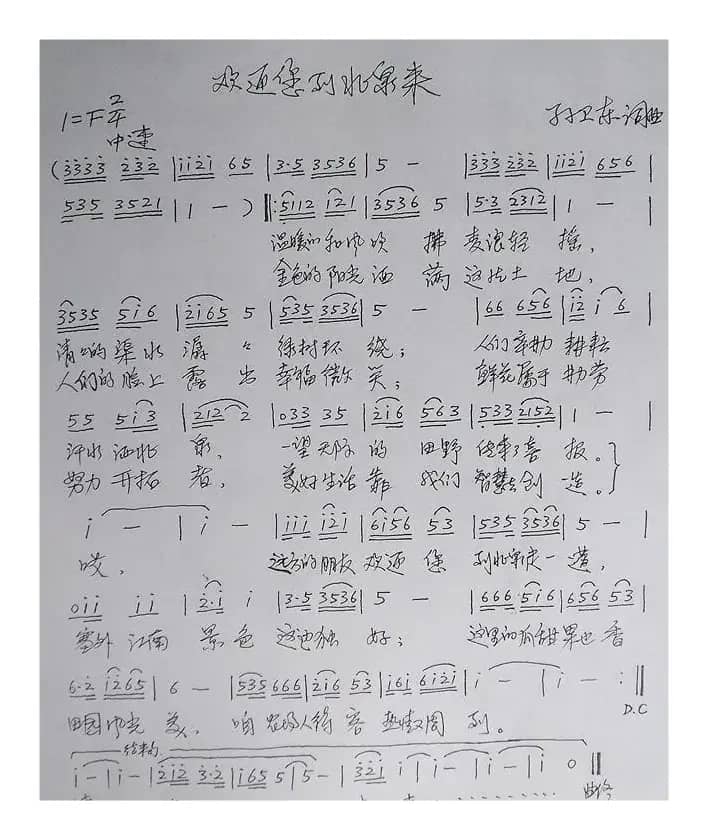 欢迎您到北泉来
1=F 2/4
中速
孙卫东词曲
(3333 232 | 1121 65 | 3·5 3536 | 5 — | 333 232 | 1121 656 |
535 3521 | 1 — ) ‖: 5112 121 | 3536 5 | 5·3 2312 | 1 — |
温暖的和风吹 拂 麦浪轻 摇，
金色的阳光洒 满 这片土 地，
3535 516 | 2165 5 | 535 3536 | 5 — | 66 656 | 12 1 6 |
清清的渠水 潺 潺 绿树环 绕； 人们辛勤 耕耘
人们的脸上 露 出 幸福微 笑； 鲜花属于 勤劳
55 513 | 212 2 | 033 35 | 216 563 | 533 2152 | 1 — |
汗水洒北 泉， 一望无际 的 田野 传来了喜 报。
努力开拓 者， 美好生活 靠 我们 智慧去创 造。
1 — | 1 — | 111 121 | 6156 53 | 535 3536 | 5 — |
哎， 远方的朋友 欢迎 您 到北泉走一 遭，
011 11 | 2·1 1 | 3·5 3536 | 5 — | 666 516 | 656 53 |
塞外 江南 景 色 这边独 好； 这里的瓜甜果也 香
6·2 1265 | 6 — | 535 666 | 216 53 | 161 6121 | 1 — | 1 — :‖
田园风光 美， 咱 农场人待 客 热情周 到。
D.C
结束句
1 — | 1 — | 212 3·2 | 165 5 | 5 — | 321 1 | 1 — | 1 — | 1 — | 1 0 ‖
曲终